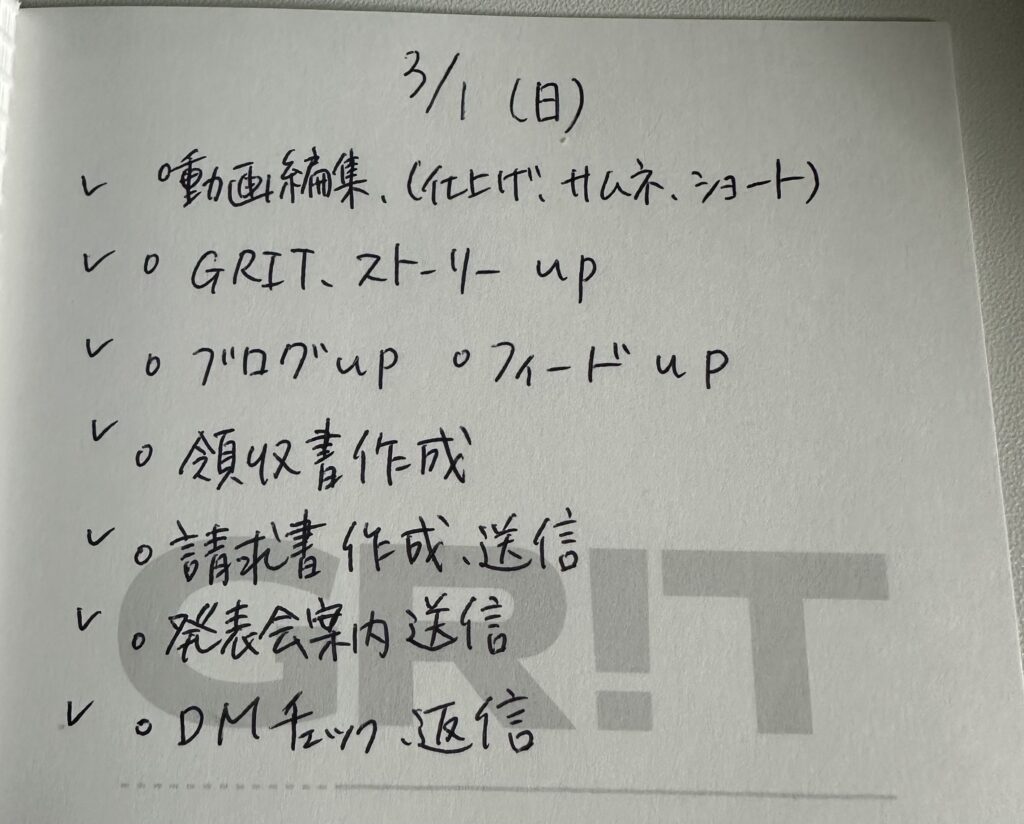 3/1 (日)
✓ ○動画編集、(仕上げ、サムネ、ショート)
✓ ○ GRIT、ストーリー up
✓ ○ ブログup ○フィード up
✓ ○ 領収書作成
✓ ○ 請求書作成、送信
✓ ○ 発表会案内送信
✓ ○ DMチェック、返信
GR!T